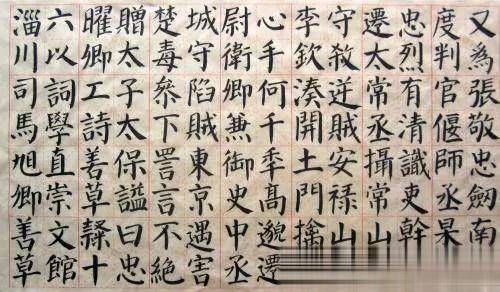 又為張敬忠劍南
度判官偃師丞杲
忠烈有清識吏幹
遷太常丞攝常山
守殺逆賊安禄山
李欽湊開土門擒
心手何千秊髙邈遷
尉衛卿兼御史中丞
城守陷賊東京遇害
楚毒叅下詈言不絕
贈太子太保諡曰忠
曜卿工詩善草隸十
六以詞學直崇文館
淄川司馬旭卿善草